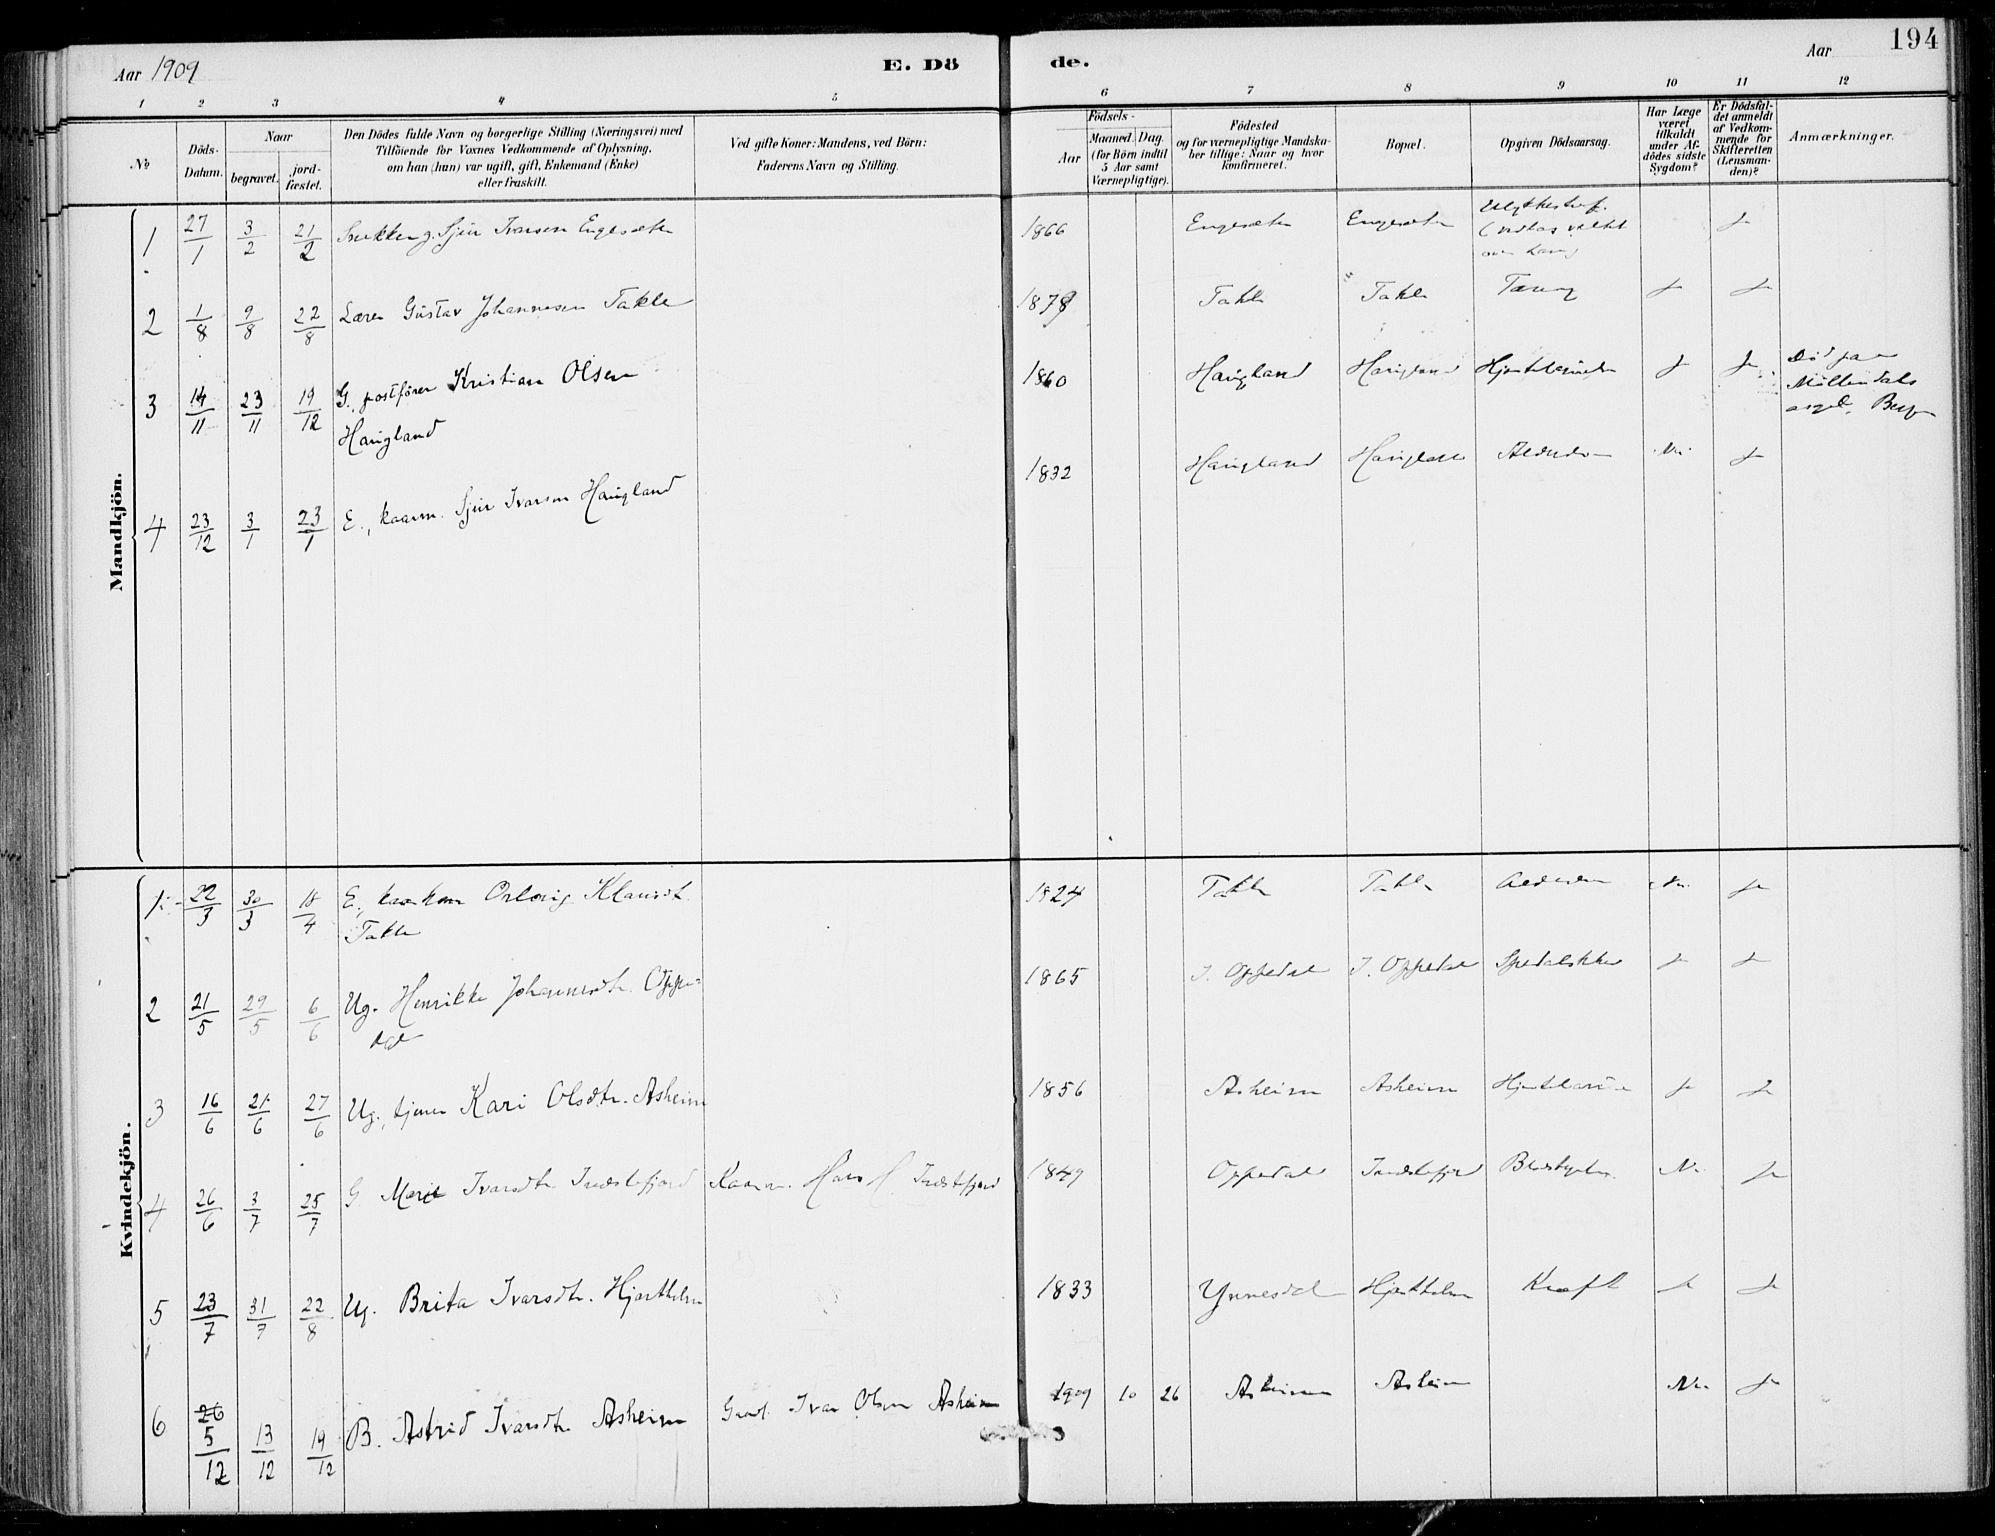 194
Aar 1909
E. Dö
de.
Aar
1 2 3 4 5 6 7 8 9 10 11 12
No
Döds-
Datum.
Naar
begravet.
jord-
fæstet.
Den Dödes fulde Navn og borgerlige Stilling (Næringsvei) med
Tilföiende for Voxnes Vedkommende af Oplysning,
om han (hun) var ugift, gift, Enkemand (Enke)
eller fraskilt.
Ved gifte Koner: Mandens, ved Börn:
Faderens Navn og Stilling.
Födsels-
Aar
Maaned. Dag.
(for Börn indtil
5 Aar samt
Værnepligtige).
Födested
og for værnepligtige Mandska-
ber tillige: Naar og hvor
konfirmeret.
Bopæl.
Opgiven Dödsaarsag.
Har Læge
været
tilkaldt
under Af-
dödes sidste
Sygdom?
Er Dödsfal-
det anmeldt
af Vedkom-
mende for
Skifteretten
(Lensman-
den)?
Anmærkninger.
Mandkjön.
1 27/1 3/2 21/2 Snekker g. Sjur Ivarsen Engesæter 1866 Engesæter Engesæter Ulykkestilf. J
2 1/8 9/8 22/8 Lærer Gustav Johannesen Takle 1878 Takle Takle Tæring J J
3 14/11 23/11 19/12 G., postfører Kristian Olsen
Haugland
1860 Haugland Haugland J J Död paa
Möllendals
asyl, Bergen
4 23/12 3/1 23/1 E., kaarm. Sjur Ivarsen Haugland 1832 Haugland Haugland Alderdom Nei J
Kvindekjön.
1 22/3 30/3 18/4 E., kaarkone Klausdt.
Takle
1824 Takle Takle Alderdom Nei J
2 21/5 29/5 6/6 Ug. Henrikke Johannesdtr. Oppe-
dal
1865 I. Oppedal I. Oppedal Spedalskhed J J
3 16/6 21/6 27/6 Ug., tjener Kari Olsdtr. Asheim 1856 Asheim Asheim J J
4 26/6 3/7 25/7 G Marie Ivarsdtr. Indrefjord Kaarm. Hans H. 1849 Oppedal Nei J
5 23/7 31/7 22/8 Ug. Brita Ivarsdtr. Hjartholm 1833 Ynnesdal Hjartholm Kræft J J
6 26
5/12 13/12 19/12 B. Astrid Ivarsdtr. Asheim Gaard. Ivar Olsen Asheim 1909 10 26 Asheim Asheim Nei J